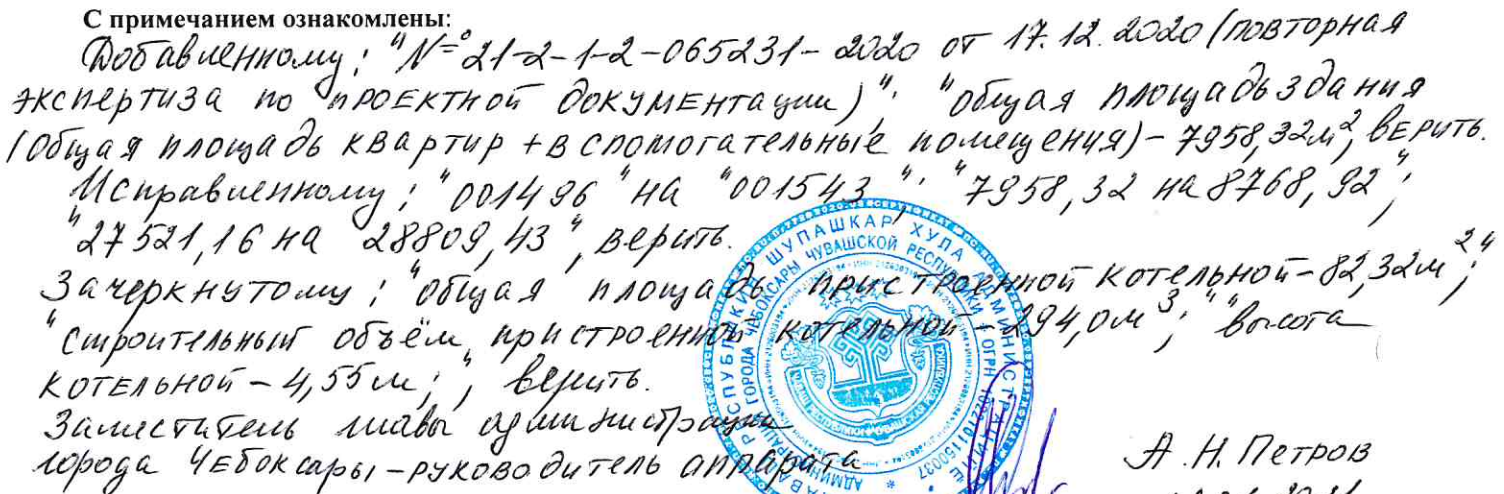 С примечанием ознакомлены:
Добавленному: "№ 21-2-1-2-065231-2020 от 17.12.2020 (повторная
экспертиза по проектной документации)"; "общая площадь здания
(общая площадь квартир + вспомогательные помещения) - 7958,32м², верить.
Исправленному: "001496" на "001543"; "7958,32 на 8768,92";
"27521,16 на 28809,43", верить.
Зачеркнутому: "общая площадь пристроенной котельной - 82,32м²";
"строительный объём пристроенной котельной - 294,0м³; "высота
котельной - 4,55м;", верить.
Заместитель главы администрации
города Чебоксары - руководитель аппарата
А.Н. Петров
ШУПАШКАР ХУЛА АДМИНИСТРАЦИЙĔ
ГОРОДА ЧЕБОКСАРЫ ЧУВАШСКОЙ РЕСПУБЛИКИ